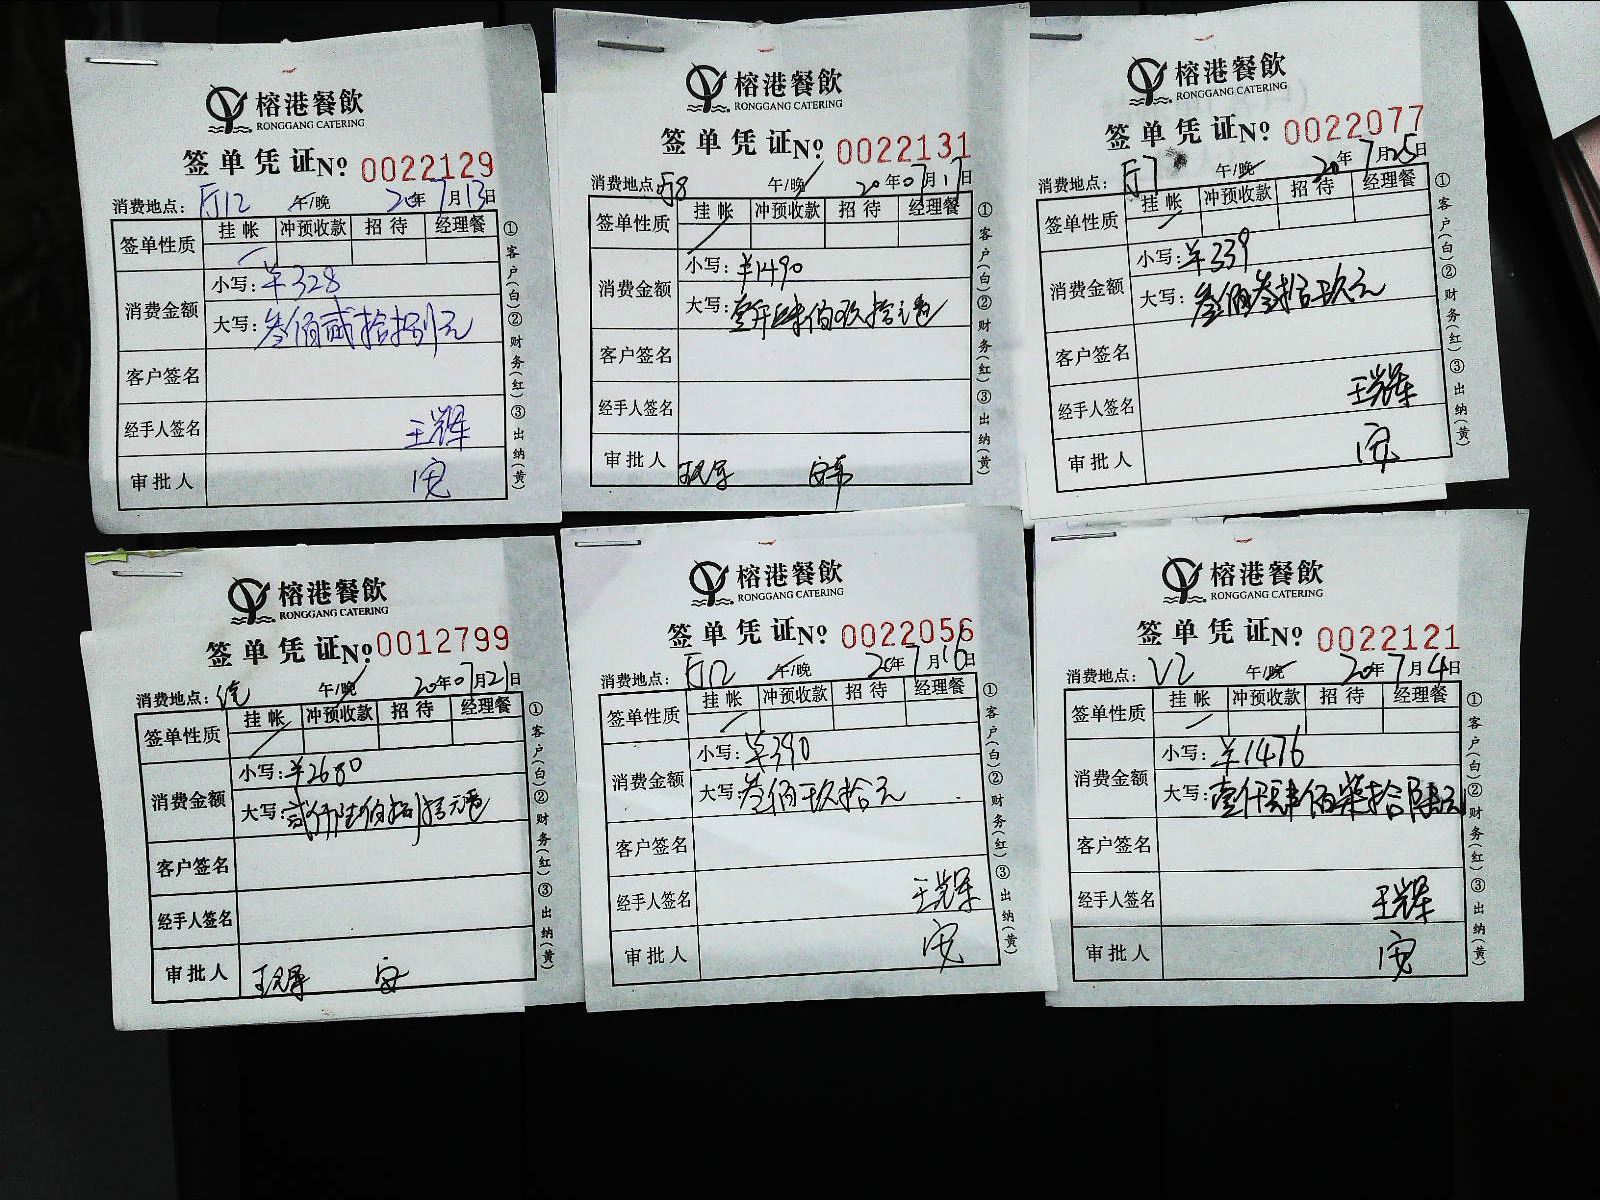 榕港餐飲
RONGGANG CATERING
签单凭证 Nº 0022129
消费地点: 厅12 午/晚 20年7月13日
签单性质 挂帐 冲预收款 招待 经理餐
消费金额 小写: ¥328
大写: 叁佰贰拾捌元
客户签名
经手人签名 王辉
审批人
①客户(白)②财务(红)③出纳(黄)
榕港餐飲
RONGGANG CATERING
签单凭证 Nº 0022131
消费地点: 厅8 午/晚 20年07月17日
签单性质 挂帐 冲预收款 招待 经理餐
消费金额 小写: ¥1490
大写: 壹仟肆佰玖拾元
客户签名
经手人签名
审批人
①客户(白)②财务(红)③出纳(黄)
榕港餐飲
RONGGANG CATERING
签单凭证 Nº 0022077
厅7 午/晚 20年7月25日
签单性质 挂帐 冲预收款 招待 经理餐
消费金额 小写: ¥339
大写: 叁佰叁拾玖元
客户签名
经手人签名 王辉
审批人
①客户(白)②财务(红)③出纳(黄)
榕港餐飲
RONGGANG CATERING
签单凭证 Nº 0012799
消费地点: 午/晚 20年07月21日
签单性质 挂帐 冲预收款 招待 经理餐
消费金额 小写: ¥2680
大写: 贰仟陆佰捌拾元
客户签名
经手人签名
审批人
①客户(白)②财务(红)③出纳(黄)
榕港餐飲
RONGGANG CATERING
签单凭证 Nº 0022056
消费地点: 厅12 午/晚 20年7月16日
签单性质 挂帐 冲预收款 招待 经理餐
消费金额 小写: ¥390
大写: 叁佰玖拾元
客户签名
经手人签名 王辉
审批人
①客户(白)②财务(红)③出纳(黄)
榕港餐飲
RONGGANG CATERING
签单凭证 Nº 0022121
消费地点: V2 午/晚 20年7月4日
签单性质 挂帐 冲预收款 招待 经理餐
消费金额 小写: ¥1476
大写: 壹仟肆佰柒拾陆元
客户签名
经手人签名 王辉
审批人
①客户(白)②财务(红)③出纳(黄)